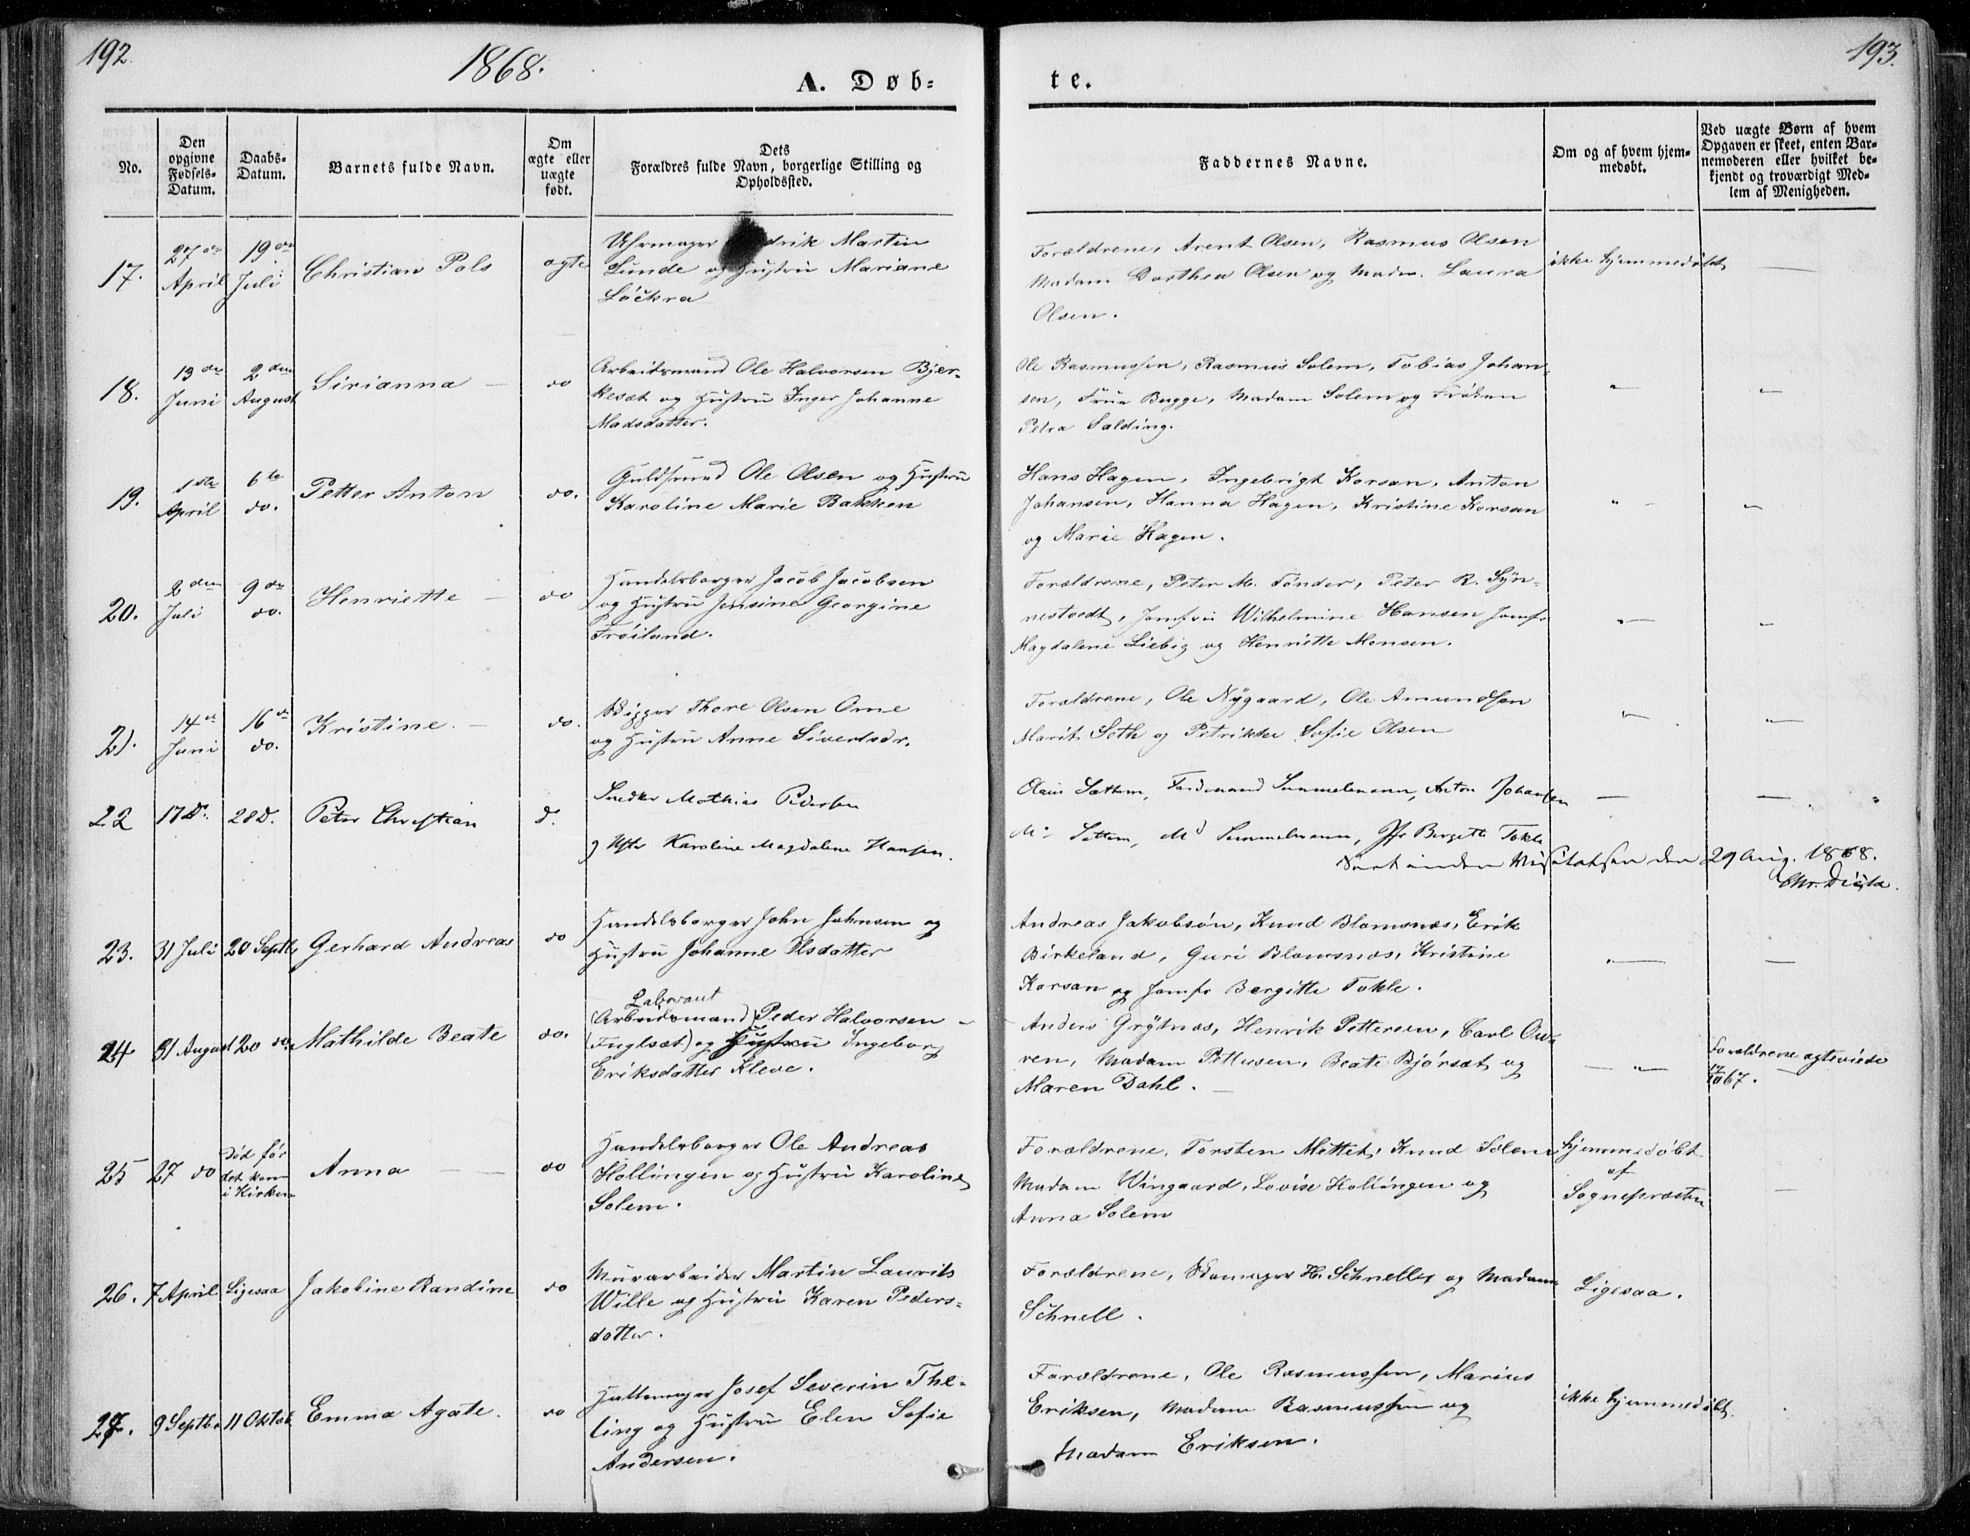 192.
1868.
A. Døb=
te.
193.
No.
Den
opgivne
Fødsels-
Datum.
Daabs-
Datum.
Barnets fulde Navn.
Om
ægte eller
uægte
født.
Dets
Forældres fulde Navn, borgerlige Stilling og
Opholdssted.
Faddernes Navne.
Om og af hvem hjem-
medøbt.
Ved uægte Børn af hvem
Opgaven er skeet, enten Bar-
nemoderen eller hvilket be-
kjendt og troværdigt Med-
lem af Menigheden.
17.
27de
April
19de
Juli
Christian Pols
ægte
Uhrmager Martin
Lunde og Hustru Mariane
Löckra
Forældrene, Arent Olsen, Rasmus Olsen
Madam Dorthea Olsen og Madm. Laura
Olsen.
ikke hjemmedøbt
—
18.
13de
Juni
2den
August
Sirianna —
do
Arbeidsmand Ole Halvorsen Bjer-
kesæt og Hustru Inger Johanne
Madsdatter.
Ole Rasmussen, Rasmus Solem, Tobias Johan-
sen, Frue Bugge, Madam Solem og Frøken
Petra Salding.
"
"
19.
1ste
April
6te
do.
Petter Anton
do.
Guldsmed Ole Olsen og Hustru
Karoline Marie Bakken
Hans Hagen, Ingebrigt Korsan, Anton
Johansen, Hanna Hagen, Kristine Korsan
og Marie Hagen.
"
"
20.
2den
Juli
9de
do.
Henriette —
do
Handelsborger Jacob Jacobsen
og Hustru Jensine Georgine
Fröiland.
Forældrene, Peter M. Tönder, Peter R. Syn-
nestvedt, Jomfru Wilhelmine Hansen Jomfr
Magdalene Liebig og Henriette Monsen.
"
"
21.
14de
Juni
16de
do.
Kristine. —
do.
Bigger Thore Olsen Orne
og Hustru Anne Sivertsdr.
Forældrene, Ole Nygaard, Ole Amundsen
Marit Seth og Petrikke Sofie Olsen
"
"
22
17 d.
28 d.
Peter Christian
d.
Snedker Mathias Pedersen
og Hustr Karoline Magdalene Hansen.
Olaus Sættem, Ferdinand Summelmann, Anton Johansen
Md Settem, Md Summelmann, Jfr Bergete Tokle
—
—
Seet under Visitatsen den 29 Aug. 1868.
23.
31 Juli
20 Septbr
Gerhard Andreas
do
Handelsborger John Johnsen og
Hustru Johanne Olsdatter
Andreas Jakobsön, Knud Blomsnæs, Erik
Birkeland, Guri Blomsnæs, Kristine
Korsan og Jomfr Bergitte Tokle.
"
—
24
31 August
20 do.
Mathilde Beate
do.
Laborant
(Arbeidsmand) Peder Halvorsen —
(Fuglsæt) og Hustru Ingeborg
Eriksdatter Kleve.
Anders Grytnæs, Henrik Pettersen, Carl Ow-
ren, Madam Pettersen, Beate Björsæt og
Maren Dahl. —
— " —
Forældrene ægteviede
17/10 67.
25
27 do
Död för
det kom
i Kirken
Anna — —
do
Handelsborger Ole Andreas
Hollingen og Hustru Karoline
Solem.
Forældrene, Torsten Mettet, Knud Solem
Madam Wingaard, Lovise Hollingen og
Anna Solem
hjemmedøbt
af
Sognepræsten
—
26.
7 April
Ligesaa
Jakobine Randine
do
Murarbeider Martin Laurits
Wille og Hustru Karen Peders-
datter.
Forældrene, H. Schneller og Madam
Schnell.
Ligesaa.
27.
9 Septbr
11 Oktob
Emma Agate.
do
Hattemager Josef Severin The-
ling og Hustru Elen Sofie
Andersen.
Forældrene, Ole Rasmussen, Marius
Eriksen, Madam Rasmussen og
Madam Eriksen.
ikke hjemmedøbt.